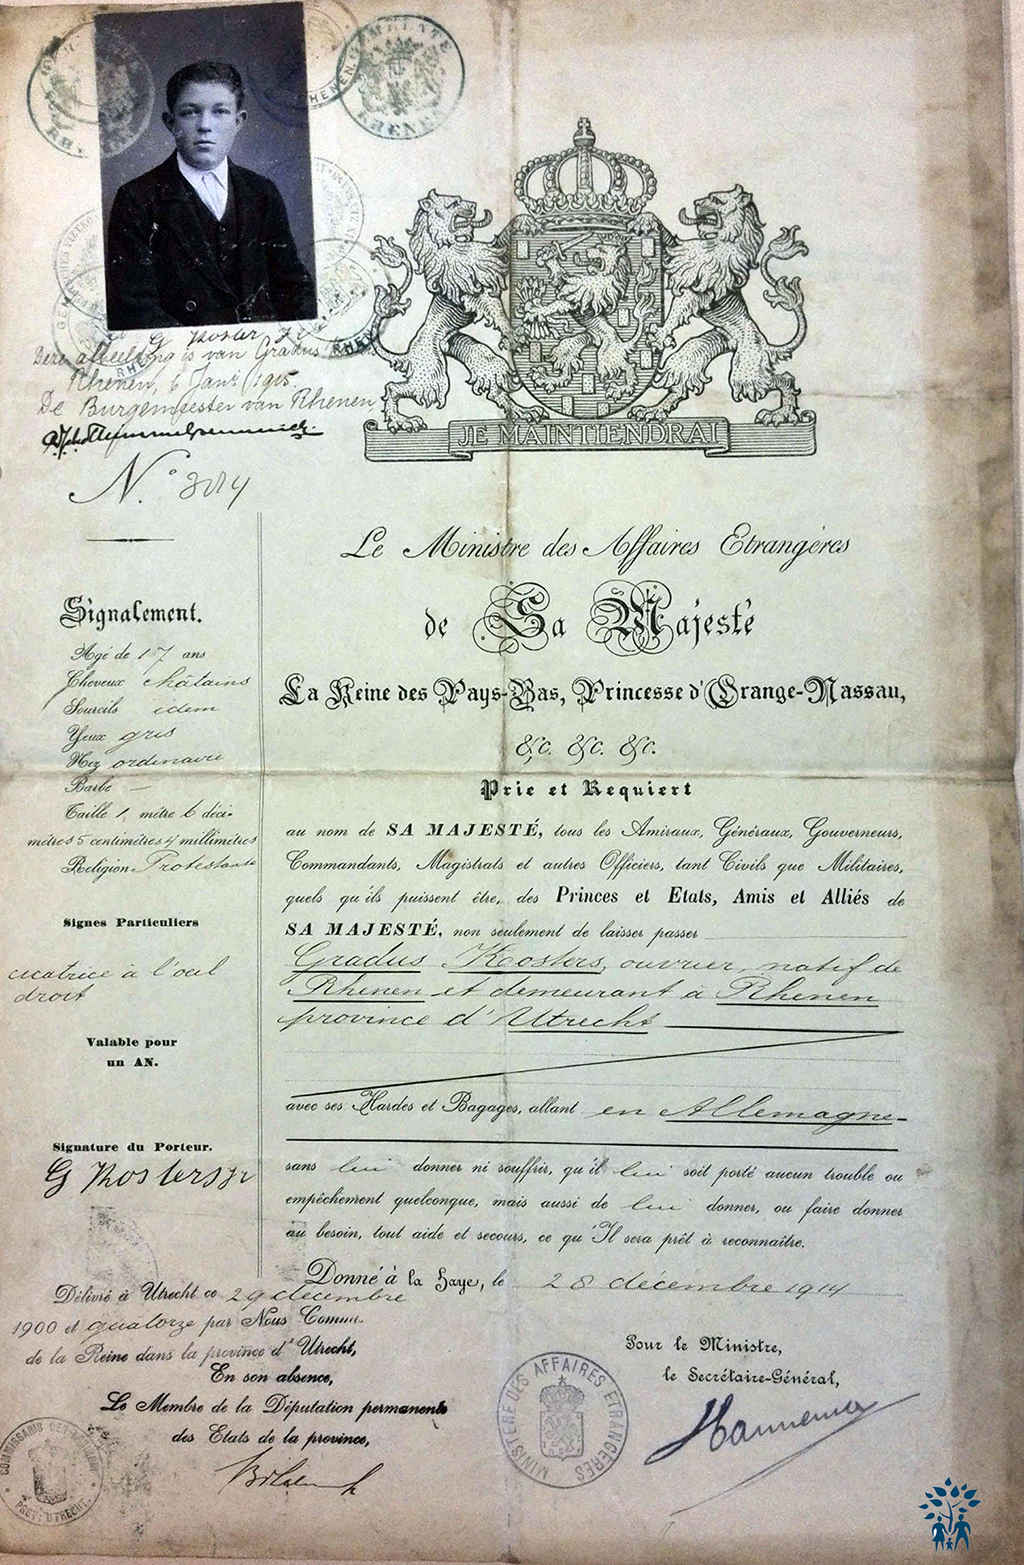 GEMEENTE RHENEN
G Kosters Jr
Deze afbeelding is van Gradus
Rhenen, 6 Jan 1915.
De Burgemeester van Rhenen,
JE MAINTIENDRAI
N.°
Le Ministre des Affaires Etrangères
de Sa Majesté
La Reine des Pays-Bas, Princesse d'Orange-Nassau,
&c. &c. &c.
Prie et Requiert
au nom de SA MAJESTÉ, tous les Amiraux, Généraux, Gouverneurs,
Commandants, Magistrats et autres Officiers, tant Civils que Militaires,
quels qu'ils puissent être, des Princes et Etats, Amis et Alliés de
SA MAJESTÉ, non seulement de laisser passer
Gradus Kosters, ouvrier, natif de
Rhenen et demeurant à Rhenen
province d'Utrecht
avec ses Hardes et Bagages, allant en Allemagne
sans lui donner ni souffrir, qu'il lui soit porté aucun trouble ou
empêchement quelconque, mais aussi de lui donner, ou faire donner
au besoin, tout aide et secours, ce qu'Il sera prêt à reconnaître.
Donné à la Haye, le 28 décembre 1914
Pour le Ministre,
le Secrétaire-Général,
Hannema
MINISTÈRE DES AFFAIRES ETRANGÈRES
Signalement.
Agé de 17 ans
Cheveux châtains
Sourcils idem
Yeux gris
Nez ordinaire
Barbe —
Taille 1, mètre 6 déci-
mètres 5 centimètres 4 millimètres
Religion Protestante
Signes Particuliers
cicatrice à l'oeil
droit
Valable pour
un AN.
Signature du Porteur.
G Kosters Jr
Délivré à Utrecht ce 29 décembre
1900 et quatorze par Nous Comm.
de la Reine dans la province d'Utrecht,
En son absence,
Le Membre de la Députation permanente
des Etats de la province,